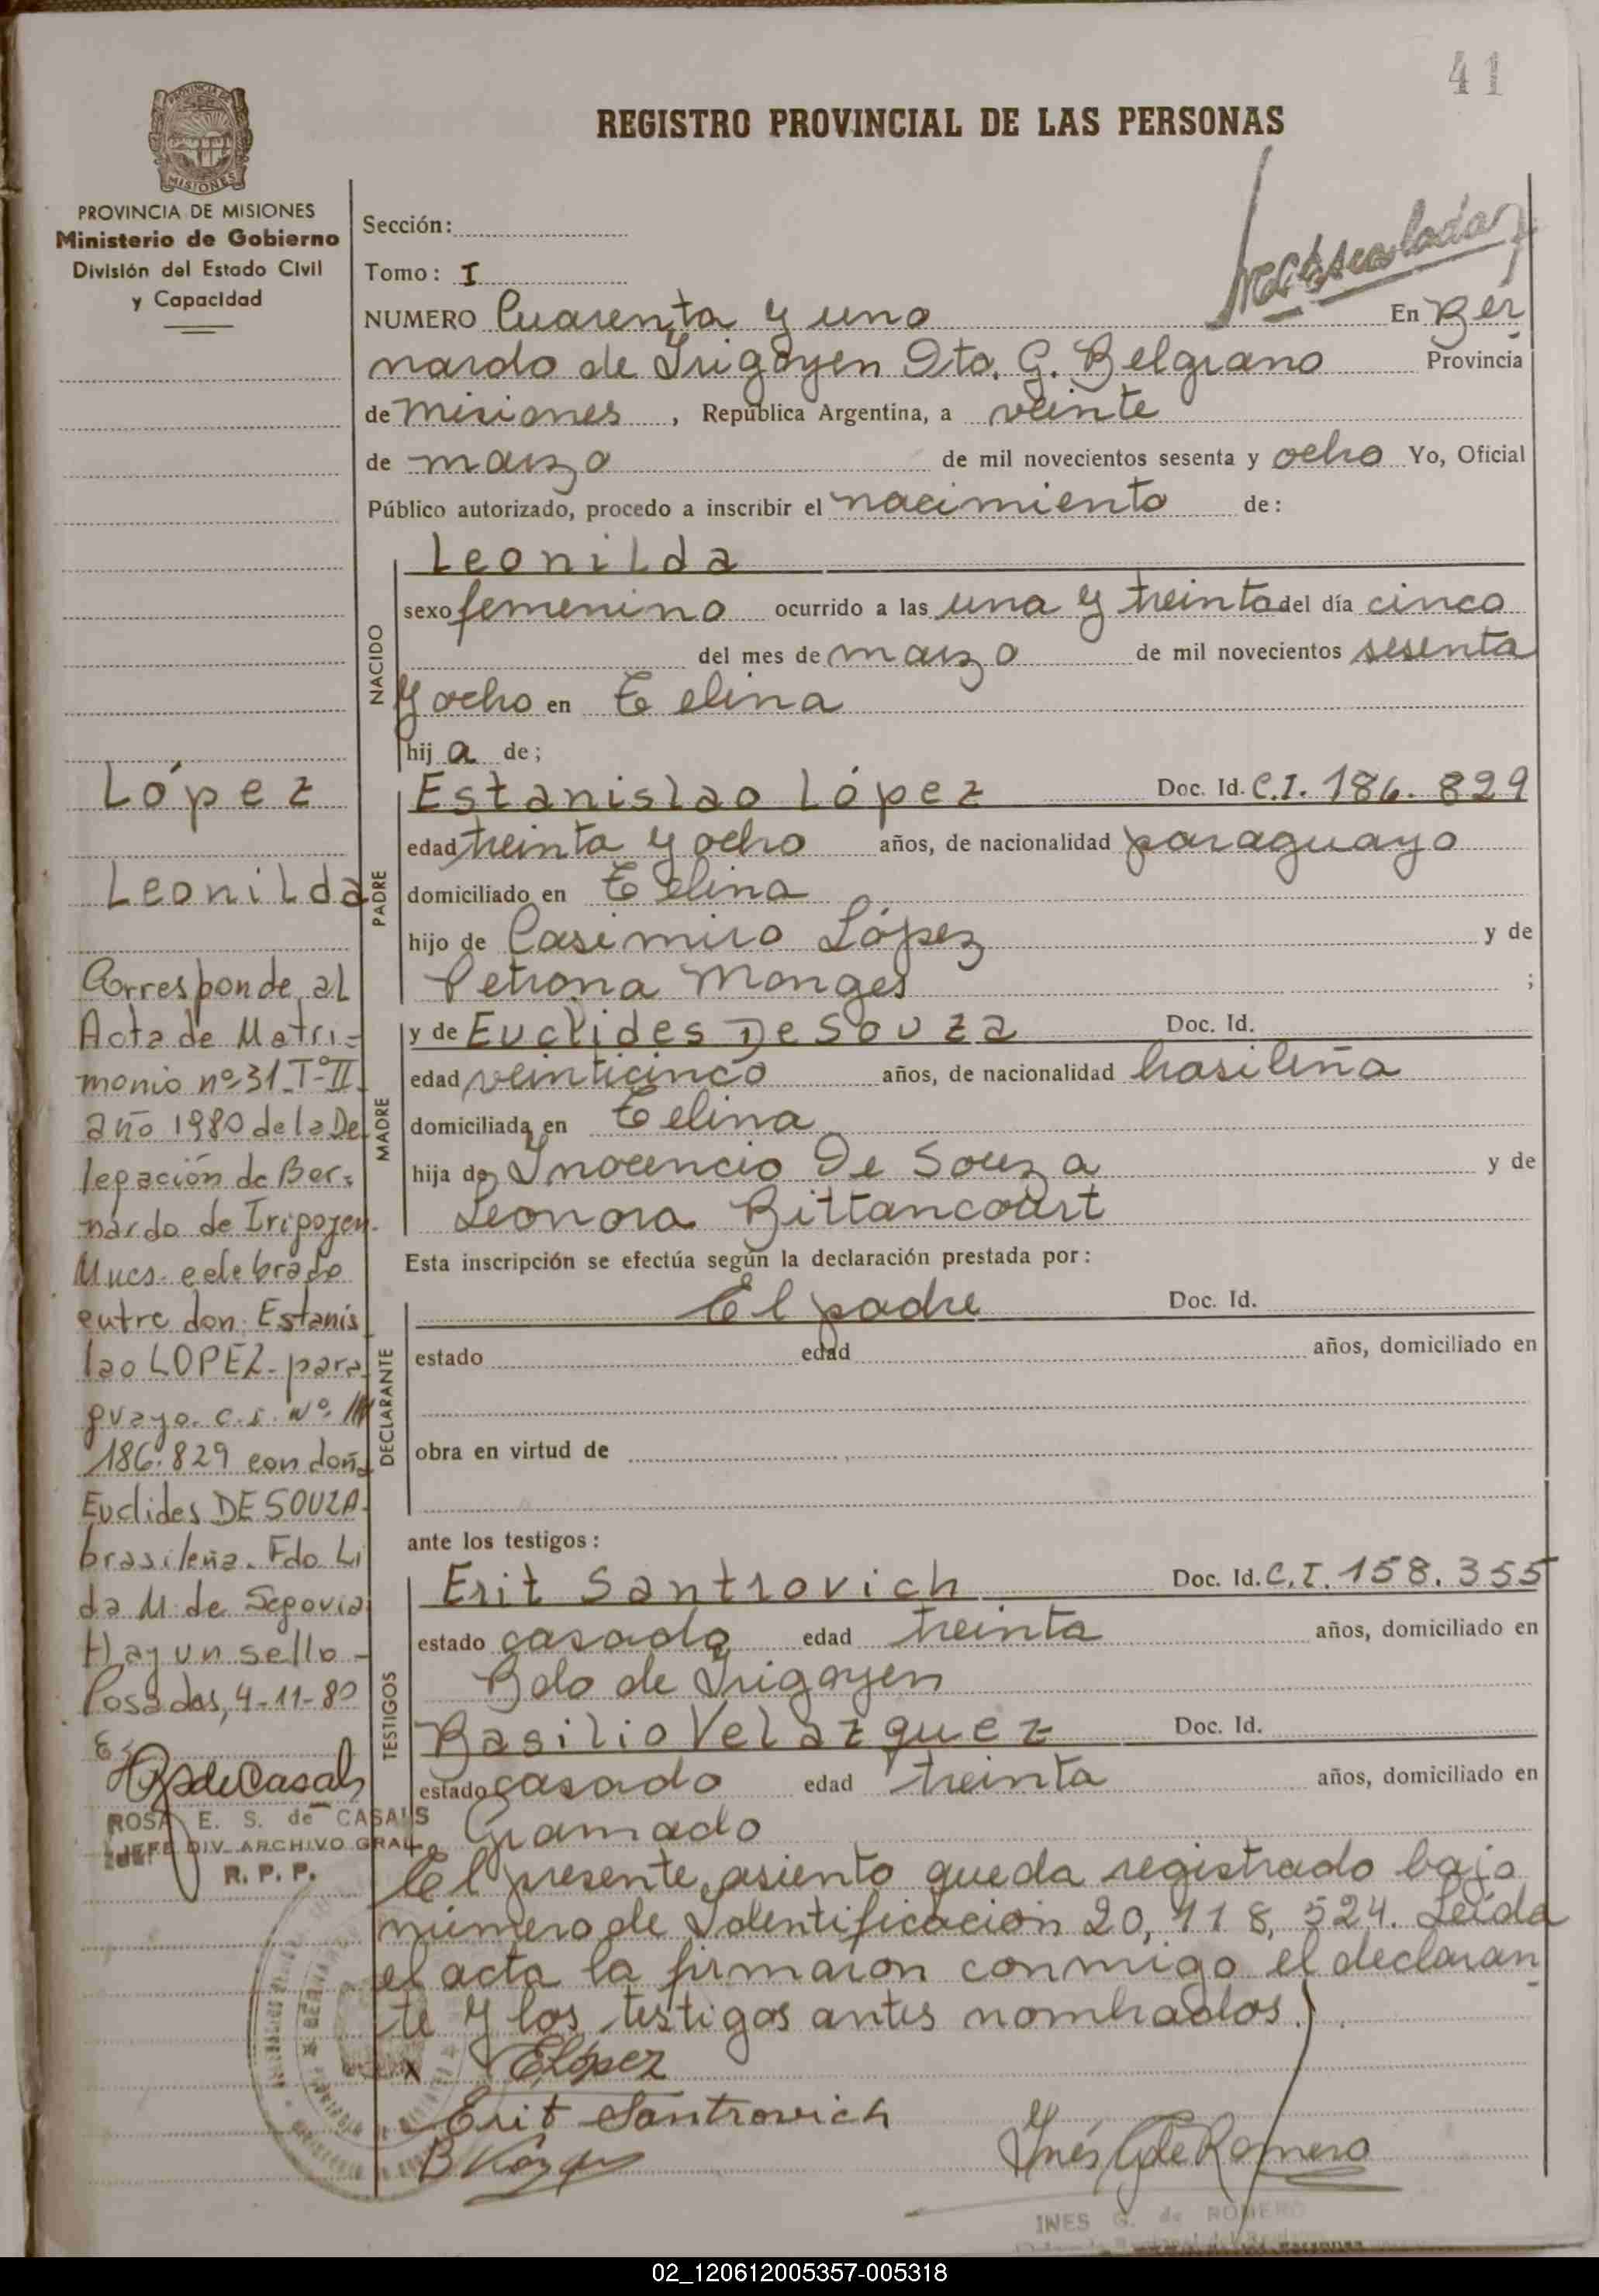 41
REGISTRO PROVINCIAL DE LAS PERSONAS
PROVINCIA DE
MISIONES
PROVINCIA DE MISIONES
Ministerio de Gobierno
División del Estado Civil
y Capacidad
Sección:
Tomo: I
NUMERO Cuarenta y uno En Ber
nardo de Irigoyen Dto. G. Belgrano Provincia
de Misiones, República Argentina, a veinte
de marzo de mil novecientos sesenta y ocho Yo, Oficial
Público autorizado, procedo a inscribir el nacimiento de:
NACIDO
Leonilda
sexo femenino ocurrido a las una y treinta del día cinco
del mes de marzo de mil novecientos sesenta
y ocho en
hija de;
PADRE
Estanislao López Doc. Id. C.I. 186.829
edad treinta y ocho años, de nacionalidad paraguayo
domiciliado en
hijo de Casimiro López y de
Petrona Monges ;
MADRE
y de Euclides De Souza Doc. Id.
edad veinticinco años, de nacionalidad brasileña
domiciliada en
hija de Inocencio De Souza y de
Leonora Bittancourt
Esta inscripción se efectúa según la declaración prestada por:
DECLARANTE
El padre Doc. Id.
estado edad años, domiciliado en
obra en virtud de
ante los testigos:
TESTIGOS
Erit Santrovich Doc. Id. C.I. 158.355
estado casado edad treinta años, domiciliado en
Bdo de Irigoyen
Basilio Velazquez Doc. Id.
estado casado edad treinta años, domiciliado en
Gramado
El presente asiento queda registrado bajo
número de Identificación 20,118,524. Leída
el acta la firmaron conmigo el declaran
te y los testigos antes nombrados.
ELópez
Erit Santrovich
Inés G de Romero
INES G. de ROMERO
López
Leonilda
Corresponde al
Acta de Matri-
monio nº 31 Tº II
año 1980 de la De
legación de Ber-
nardo de Irigoyen.
Mnes. celebrado
entre don: Estanis
lao LOPEZ- para
guayo. c.i. Nº
186.829 con doña
Euclides DE SOUZA-
brasileña. Fdo Li
da M. de Segovia
Hay un sello-
Posadas, 4-11-80
ROSA E. S. de CASALS
JEFE DIV. ARCHIVO GRAL.
R. P. P.
02_120612005357-005318